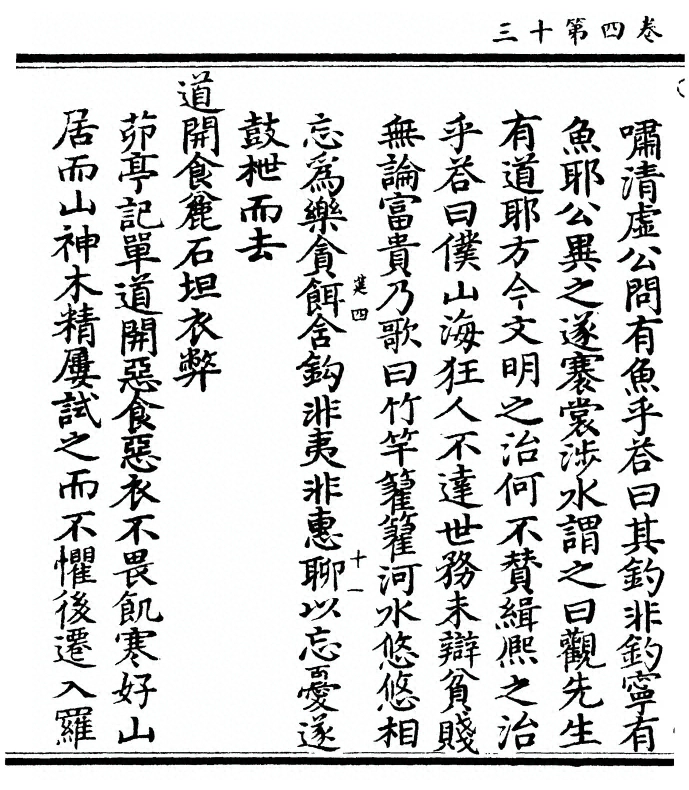 三十第四卷
嘯清虛公問有魚乎荅曰其釣非釣寧有
魚耶公異之遂褰裳涉水謂之曰觀先生
有道耶方今文明之治何不贊緝熙之治
乎荅曰僕山海狂人不達世務未辯貧賤
無論富貴乃歌曰竹竿籊籊河水悠悠相
忘為樂貪餌舍鈎非夷非惠聊以忘憂遂
莚四
十一
鼓枻而去
道開食麄石坦衣弊
茆亭記單道開惡食惡衣不畏飢寒好山
居而山神木精屢試之而不懼後遷入羅